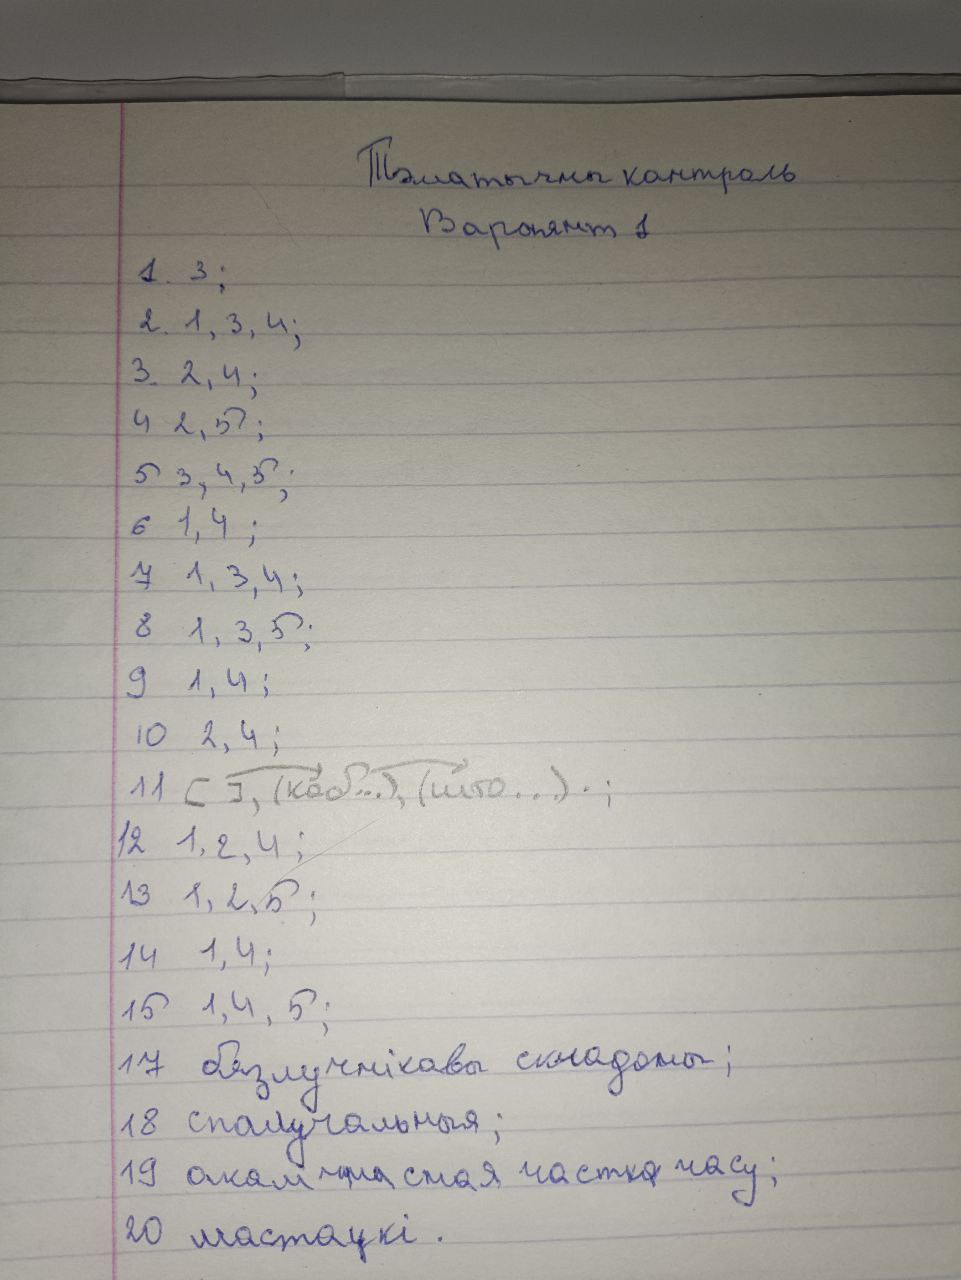 Тэматычны кантроль
Варыянт 1
1. 3;
2. 1, 3, 4;
3. 2, 4;
4 2, 5;
5 3, 4, 5;
6 1, 4;
7 1, 3, 4;
8 1, 3, 5;
9 1, 4;
10 2, 4;
11 [ ], (каб...), (што...).;
12 1, 2, 4;
13 1, 2, 5;
14 1, 4;
15 1, 4, 5;
17 бязлучнікавы складаны;
18 спалучальныя;
19 частка часу;
20 мастацкі.